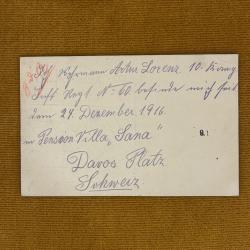 Artur Lorenz 10. Komp
Inft Regt No 60 befinde mich seit
dem 24. Dezember 1916.
in Pension Villa „Sana"
Davos Platz
Schweiz